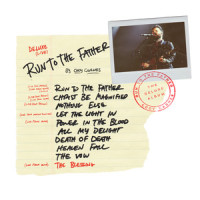 DELUXE
(LIVE)
RUN TO THE FATHER
BY CODY CARNES
RUN TO THE FATHER
CHRIST BE MAGNIFIED
NOTHING ELSE
LET THE LIGHT IN
POWER IN THE BLOOD
ALL MY DELIGHT
DEATH OF DEATH
HEAVEN FALL
THE VOW
THE BLESSING
RUN TO THE FATHER
THE DELUXE ALBUM
CODY CARNES